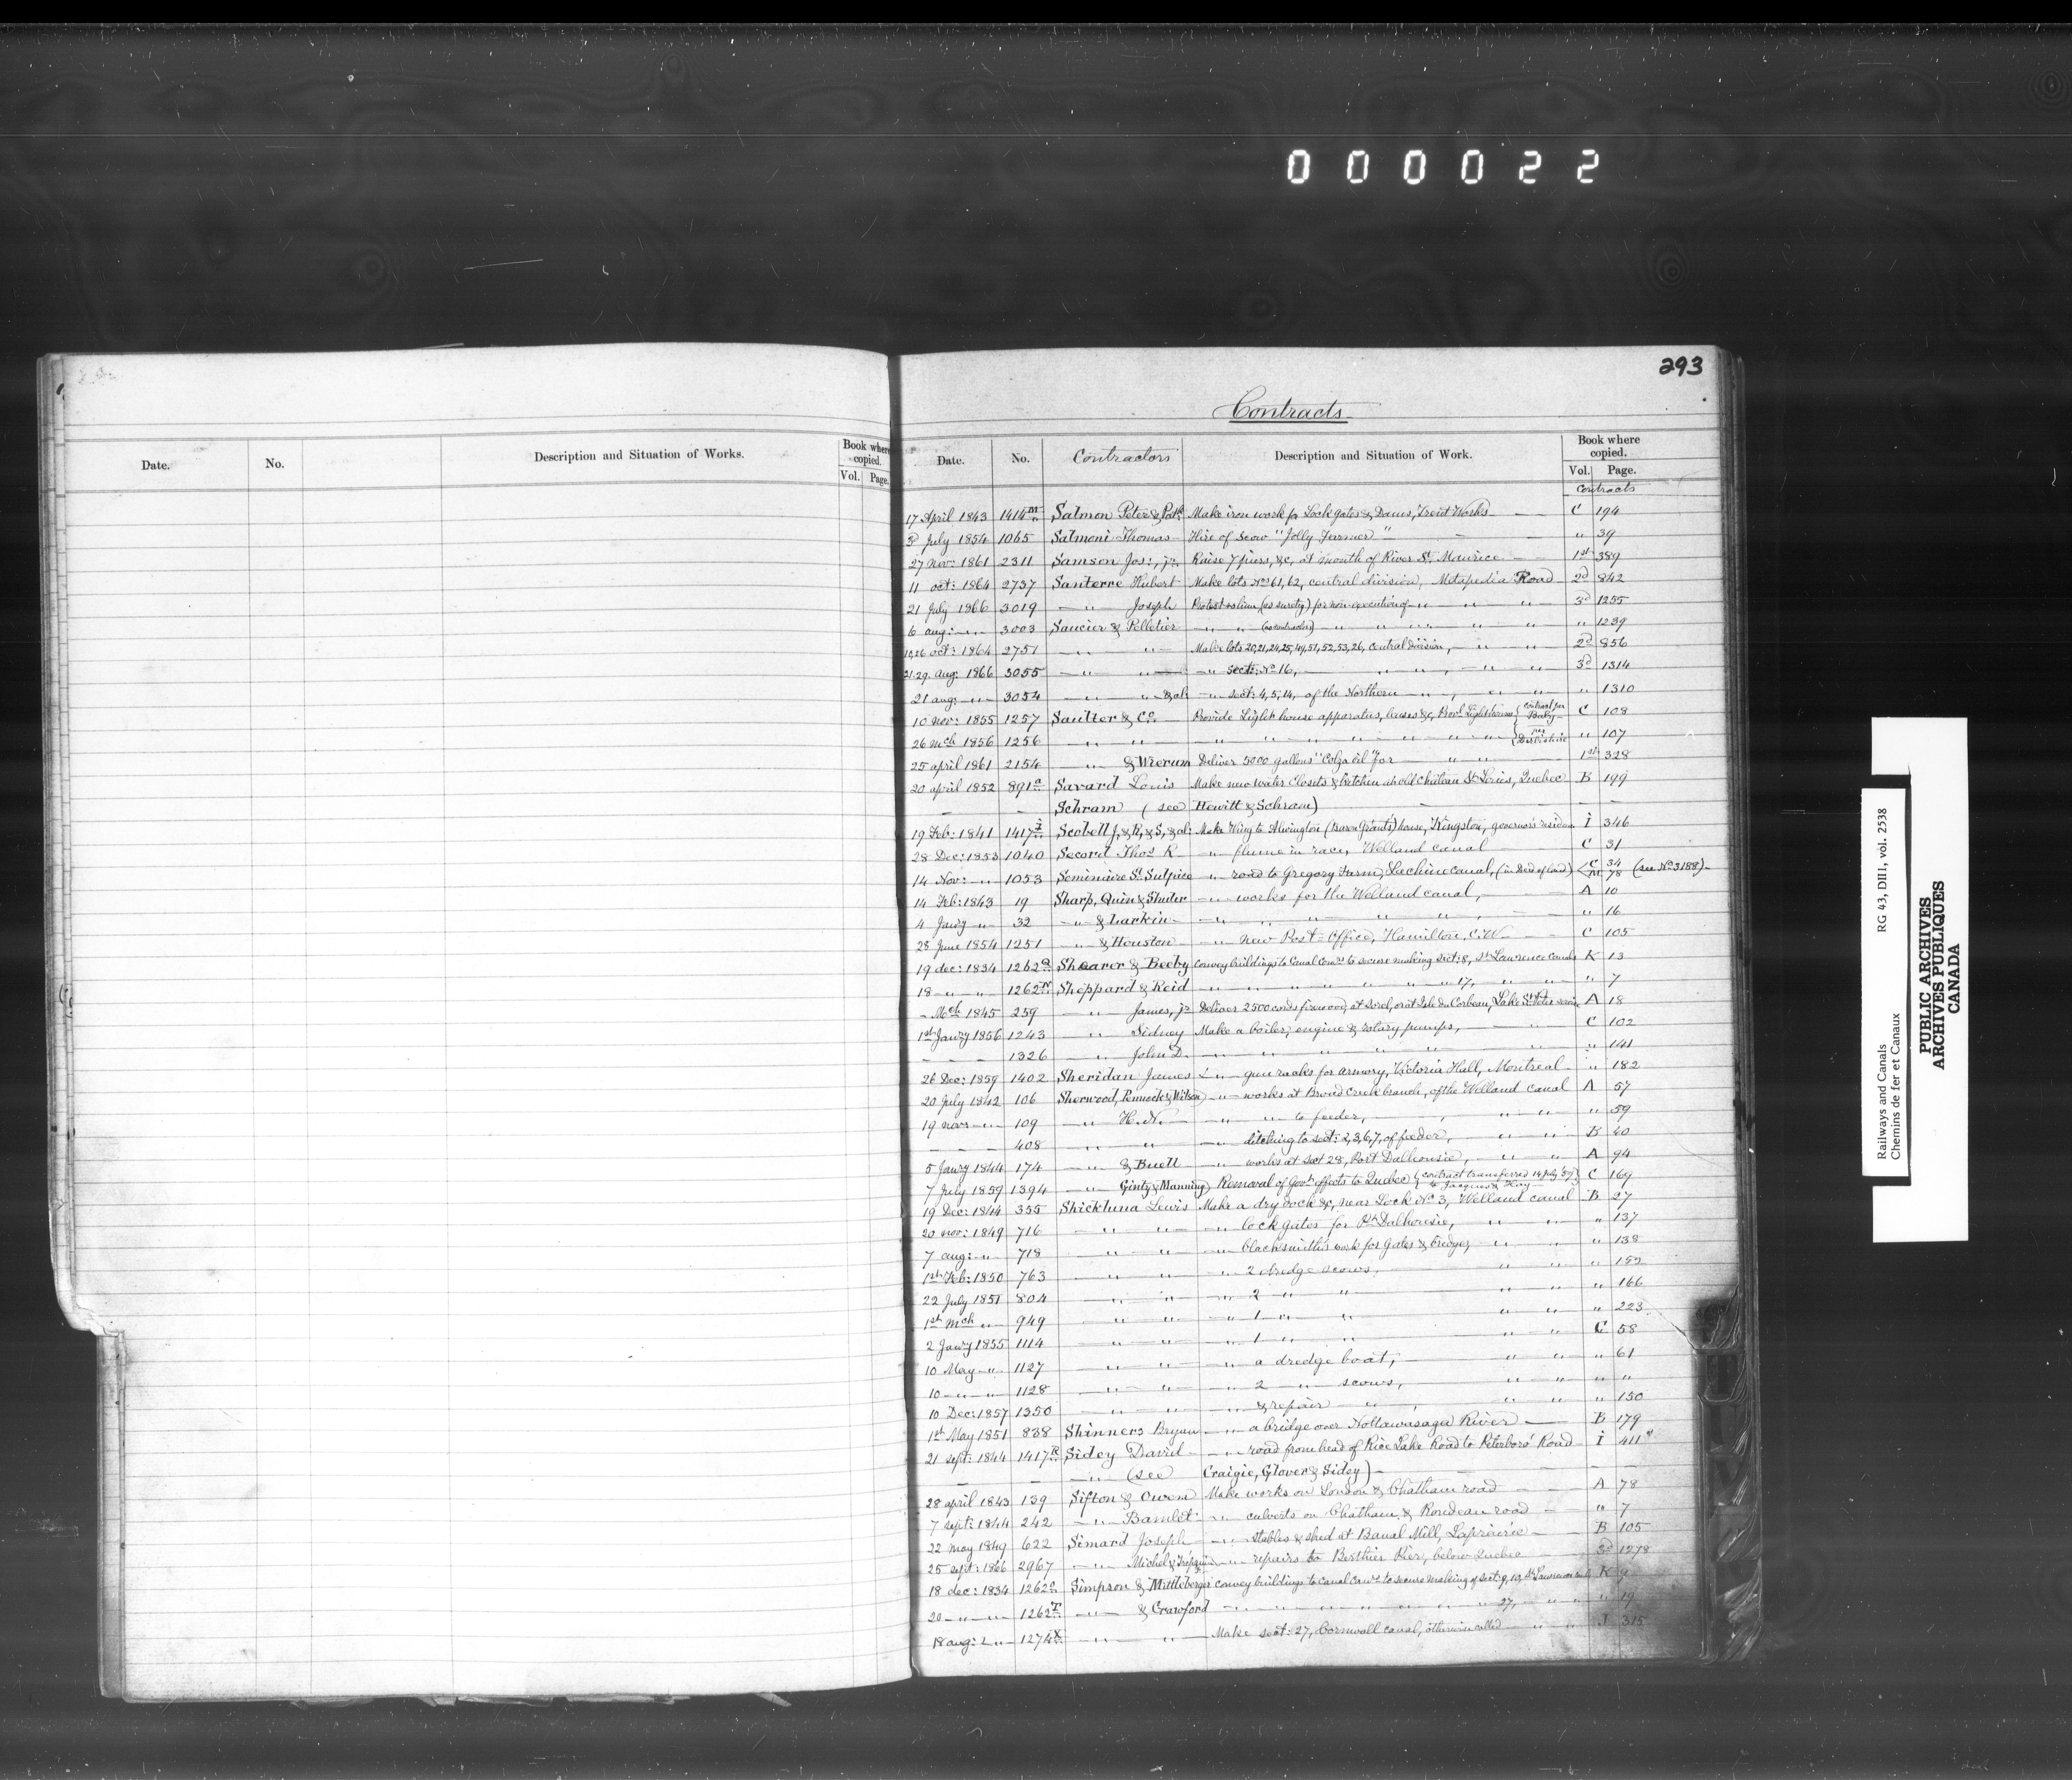 000022
293
Contracts
Date. No. Description and Situation of Works. Book where copied. Vol. Page.
Date. No. Contractors Description and Situation of Work. Book where copied. Vol. Page.
Contracts
17 April 1843 1414 m Salmon Peter & Make iron work for Lock gates & Dams, Trent Works C 194
3d July 1854 1065 Salmoni Thomas Hire of Scow "Jolly Farmer" " 39
27 Nov: 1861 2311 Samson Jos:, jr. Raise 7 piers, &c, at mouth of River St. Maurice 1st 389
11 oct: 1864 2737 Santerre Hubert Make lots Nos 61, 62, central division, Metapedia Road 2d 842
21 July 1866 3019 " Joseph Protest (as surety) for non-execution of " " " 3d 1255
6 aug: " 3003 Saucier & Pelletier " " (as contractors) " " " " " " 1239
10,26 oct: 1864 2751 " " Make lots 20,21,24,25,49,51,52,53,26, central division, " " 2d 856
21.29. aug: 1866 3055 " " " sect: No 16, " " " " 3d 1314
21 aug: " 3054 " " & al " sect: 4, 5, 14, of the Northern " " " " 1310
10 Nov: 1855 1257 Saulter & Co. Provide Light house apparatus, lenses &c, Provl Lighthouses { contract per Baby C 108
26 Mch 1856 1256 " " " " " " " " " { per " 107
25 april 1861 2154 " & Wierum Deliver 5000 gallons "Colza oil" for " " 1st 328
20 april 1852 891 a Savard Louis Make new water closets & kitchen at old Chateau St. Louis, Quebec B 199
Schram (see Hewitt & Schram)
19 Feb: 1841 1417 I Scobell J, & R, & S, & al: Make Wing to Alwington (Baron Grants) house, Kingston, governor's residence I 346
28 Dec: 1853 1040 Secord Thos R " flume in race, Welland canal C 31
14 Nov: " 1053 Seminaire St. Sulpice " road to Gregory Farm, Lachine canal, (in Deed of land) C 34 M 78 (see No 3188)
14 Feb: 1843 19 Sharp, Quin & Shuter " works for the Welland canal, A 10
4 Jany " 32 " & Larkin " " " " " " 16
28 June 1854 1251 " & Houston " new Post-Office, Hamilton, C.W. C 105
19 dec: 1834 1262 Q Shearer & Beeby convey buildings to Canal Comrs to secure making sect: 8, St. Lawrence Canals K 13
18 " " 1262 N Sheppard & Reid " " " " " " " 17, " " " 7
" Mch 1845 259 " James, jr Deliver 2500 cords firewood, at Sorel, or at Isle du Corbeau, Lake St. Peter A 18
1st Jany 1856 1243 " Sidney Make a boiler, engine & rotary pumps, " C 102
1326 " John D. " " " " " " 141
26 Dec: 1859 1402 Sheridan James " gun racks for armory, Victoria Hall, Montreal " 182
20 July 1842 106 Sherwood, Pennock & Wilson " works at Broad Creek branch, of the Welland canal A 57
19 novr " 109 " H. N. " " to feeder, " " " 59
408 " " " ditching to sect: 2, 3, 6, 7, of feeder, " " B 40
5 Jany 1844 174 " & Buell " works at sect 28, Port Dalhousie, " " A 94
7 July 1859 1394 " Ginty & Manning Removal of Govt effects to Quebec { contract transferred 14 July '59 to Jacques & Hay } C 169
19 Dec: 1844 355 Shickluna Lewis Make a dry dock &c, near Lock No 3, Welland canal B 27
20 nov: 1849 716 " " " lock gates for Pt Dalhousie, " " " 137
7 aug: " 718 " " " blacksmith's work for Gates & bridges " " " 138
1st Feb: 1850 763 " " " 2 dredge scows, " " " 152
22 July 1851 804 " " " 2 " " " " " 166
1st Mch " 949 " " " 1 " " " " " 223
2 Jany 1855 1114 " " " 1 " " " " C 58
10 May " 1127 " " " a dredge boat, " " " 61
10 " " 1128 " " " 2 " scows, " " " "
10 Dec: 1857 1350 " " " & repair " " " " " 150
1st May 1851 838 Shinners Bryan " a bridge over Nottawasaga River B 179
21 sept: 1844 1417 R Sidey David " road from head of Rice Lake Road to Peterboro' Road I 411
" (see Craigie, Glover & Sidey)
28 april 1843 139 Sifton & Owen Make works on London & Chatham road A 78
7 sept: 1844 242 " Bamlet " culverts on Chatham & Rondeau road " 7
22 May 1849 622 Simard Joseph " stables & shed at Banal Mill, Laprairie B 105
25 sept: 1866 2967 " Michel & " repairs to Berthier Pier, below Quebec 3d 1278
18 dec: 1834 1262 Simpson & Mittleberger convey buildings to canal Comrs to secure making of sect: 9, 10, St. Lawrence K 9
20 " " 1262 T " & Crawford " " " " " " 27, " " " 19
18 aug: " 1274 X " " Make sect: 27, Cornwall canal, otherwise called " " J 315
Railways and Canals RG 43, DII1, vol. 2538
Chemins de fer et Canaux
PUBLIC ARCHIVES
ARCHIVES PUBLIQUES
CANADA